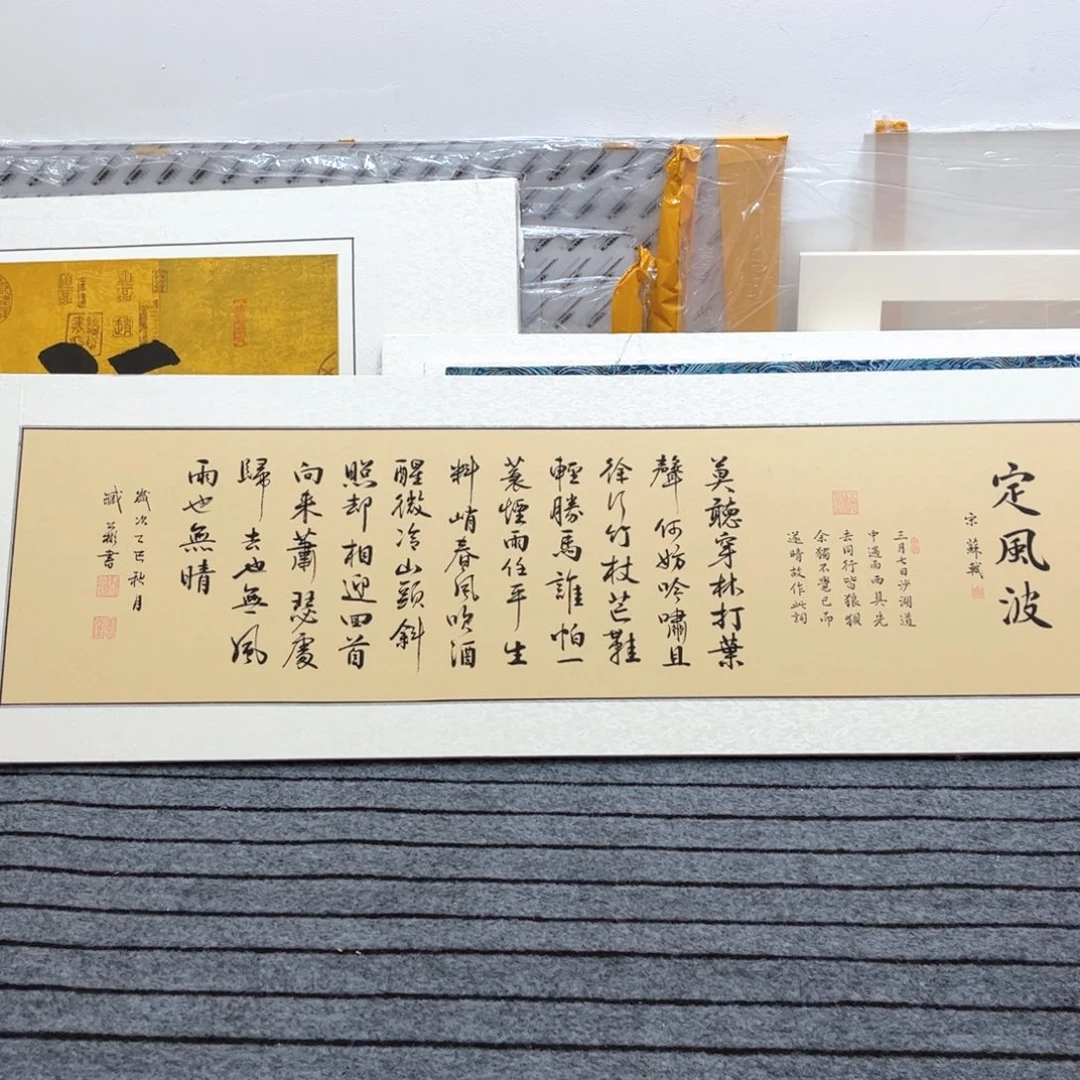 定風波
宋蘇軾
三月七日沙湖道
中遇雨雨具先
去同行皆狼狽
余獨不覺已而
遂晴故作此詞
莫聽穿林打葉
聲何妨吟嘯且
徐行竹杖芒鞋
輕勝馬誰怕一
蓑煙雨任平生
料峭春風吹酒
醒微冷山頭斜
照却相迎回首
向来蕭瑟處
歸去也無風
雨也無晴
歲次乙巳秋月
臧書